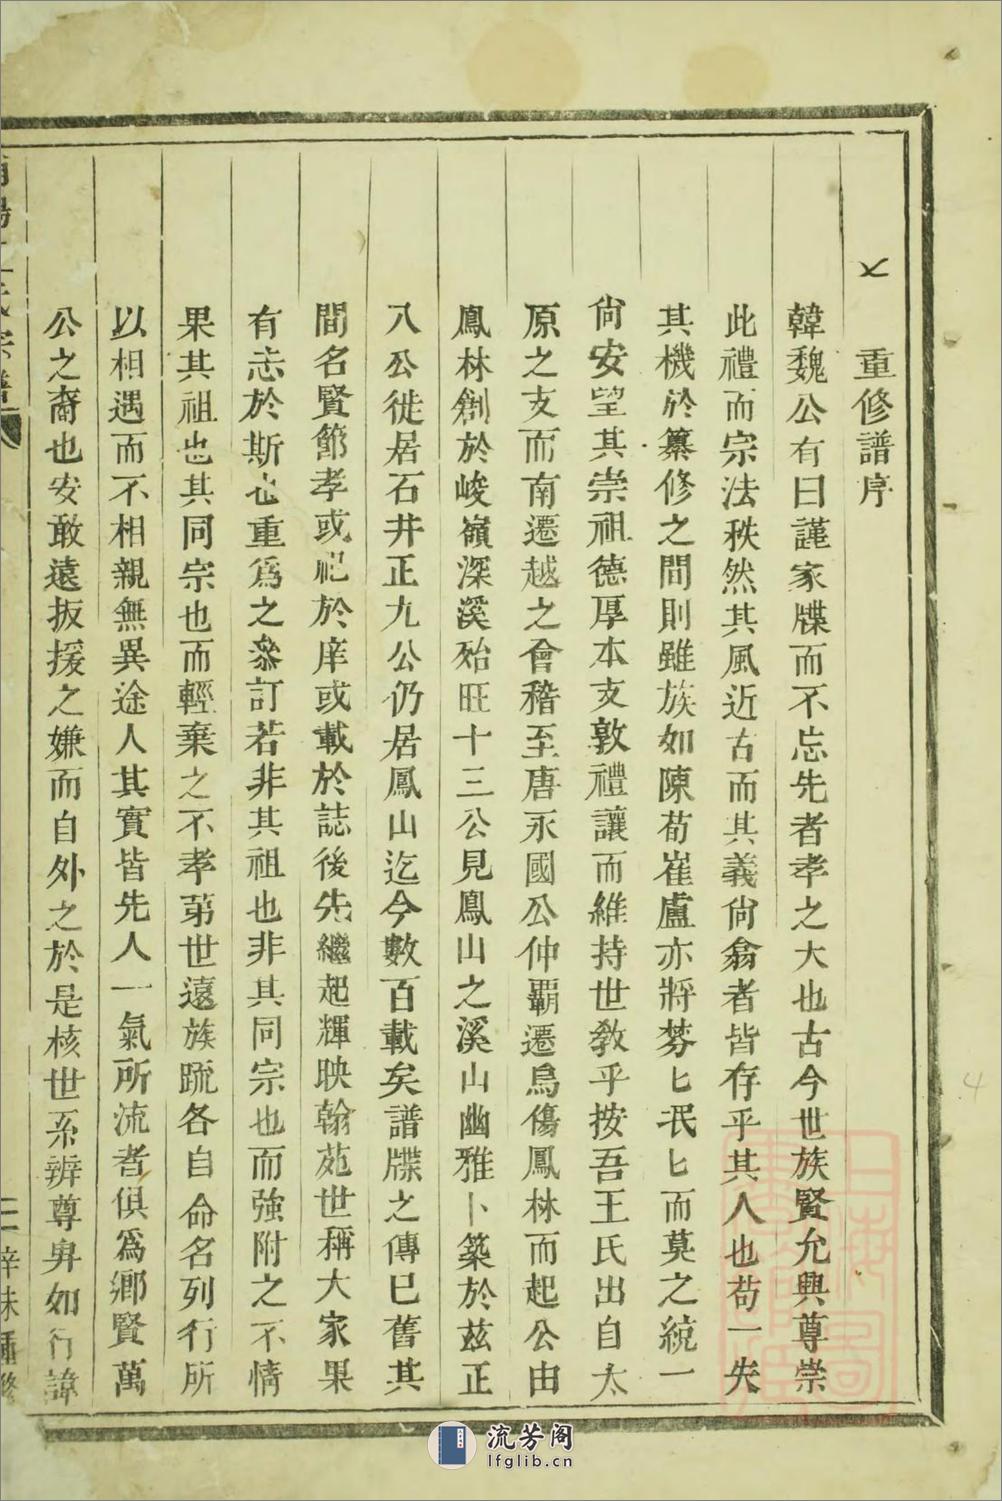 重修譜序
韓魏公有曰謹家牒而不忘先者孝之大也古今世族賢允興尊崇
此禮而宗法秩然其風近古而其義尙翁者皆存乎其人也苟一失
其機於纂修之間則雖族如陳荀崔盧亦將棼匕泯匕而莫之統一
尙安望其崇祖德厚本支敦禮讓而維持世敎乎按吾王氏出自太
原之支而南遷越之會稽至唐永國公仲覇遷烏傷鳳林而起公由
鳳林創於峻嶺深溪殆旺十三公見鳳山之溪山幽雅卜築於茲正
八公徙居石井正九公仍居鳳山迄今數百載矣譜牒之傳已舊其
間名賢節孝或祀於庠或載於誌後先繼起輝映翰苑世稱大家果
有志於斯也重爲之叅訂若非其祖也非其同宗也而強附之不情
果其祖也其同宗也而輕棄之不孝第世遠族䟽各自命名列行所
以相遇而不相親無異途人其實皆先人一氣所流者俱爲鄉賢萬
公之裔也安敢遠扳援之嫌而自外之於是核世系辨尊卑如行諱
王氏宗譜
辛未重修
流芳阁
lfglib.cn